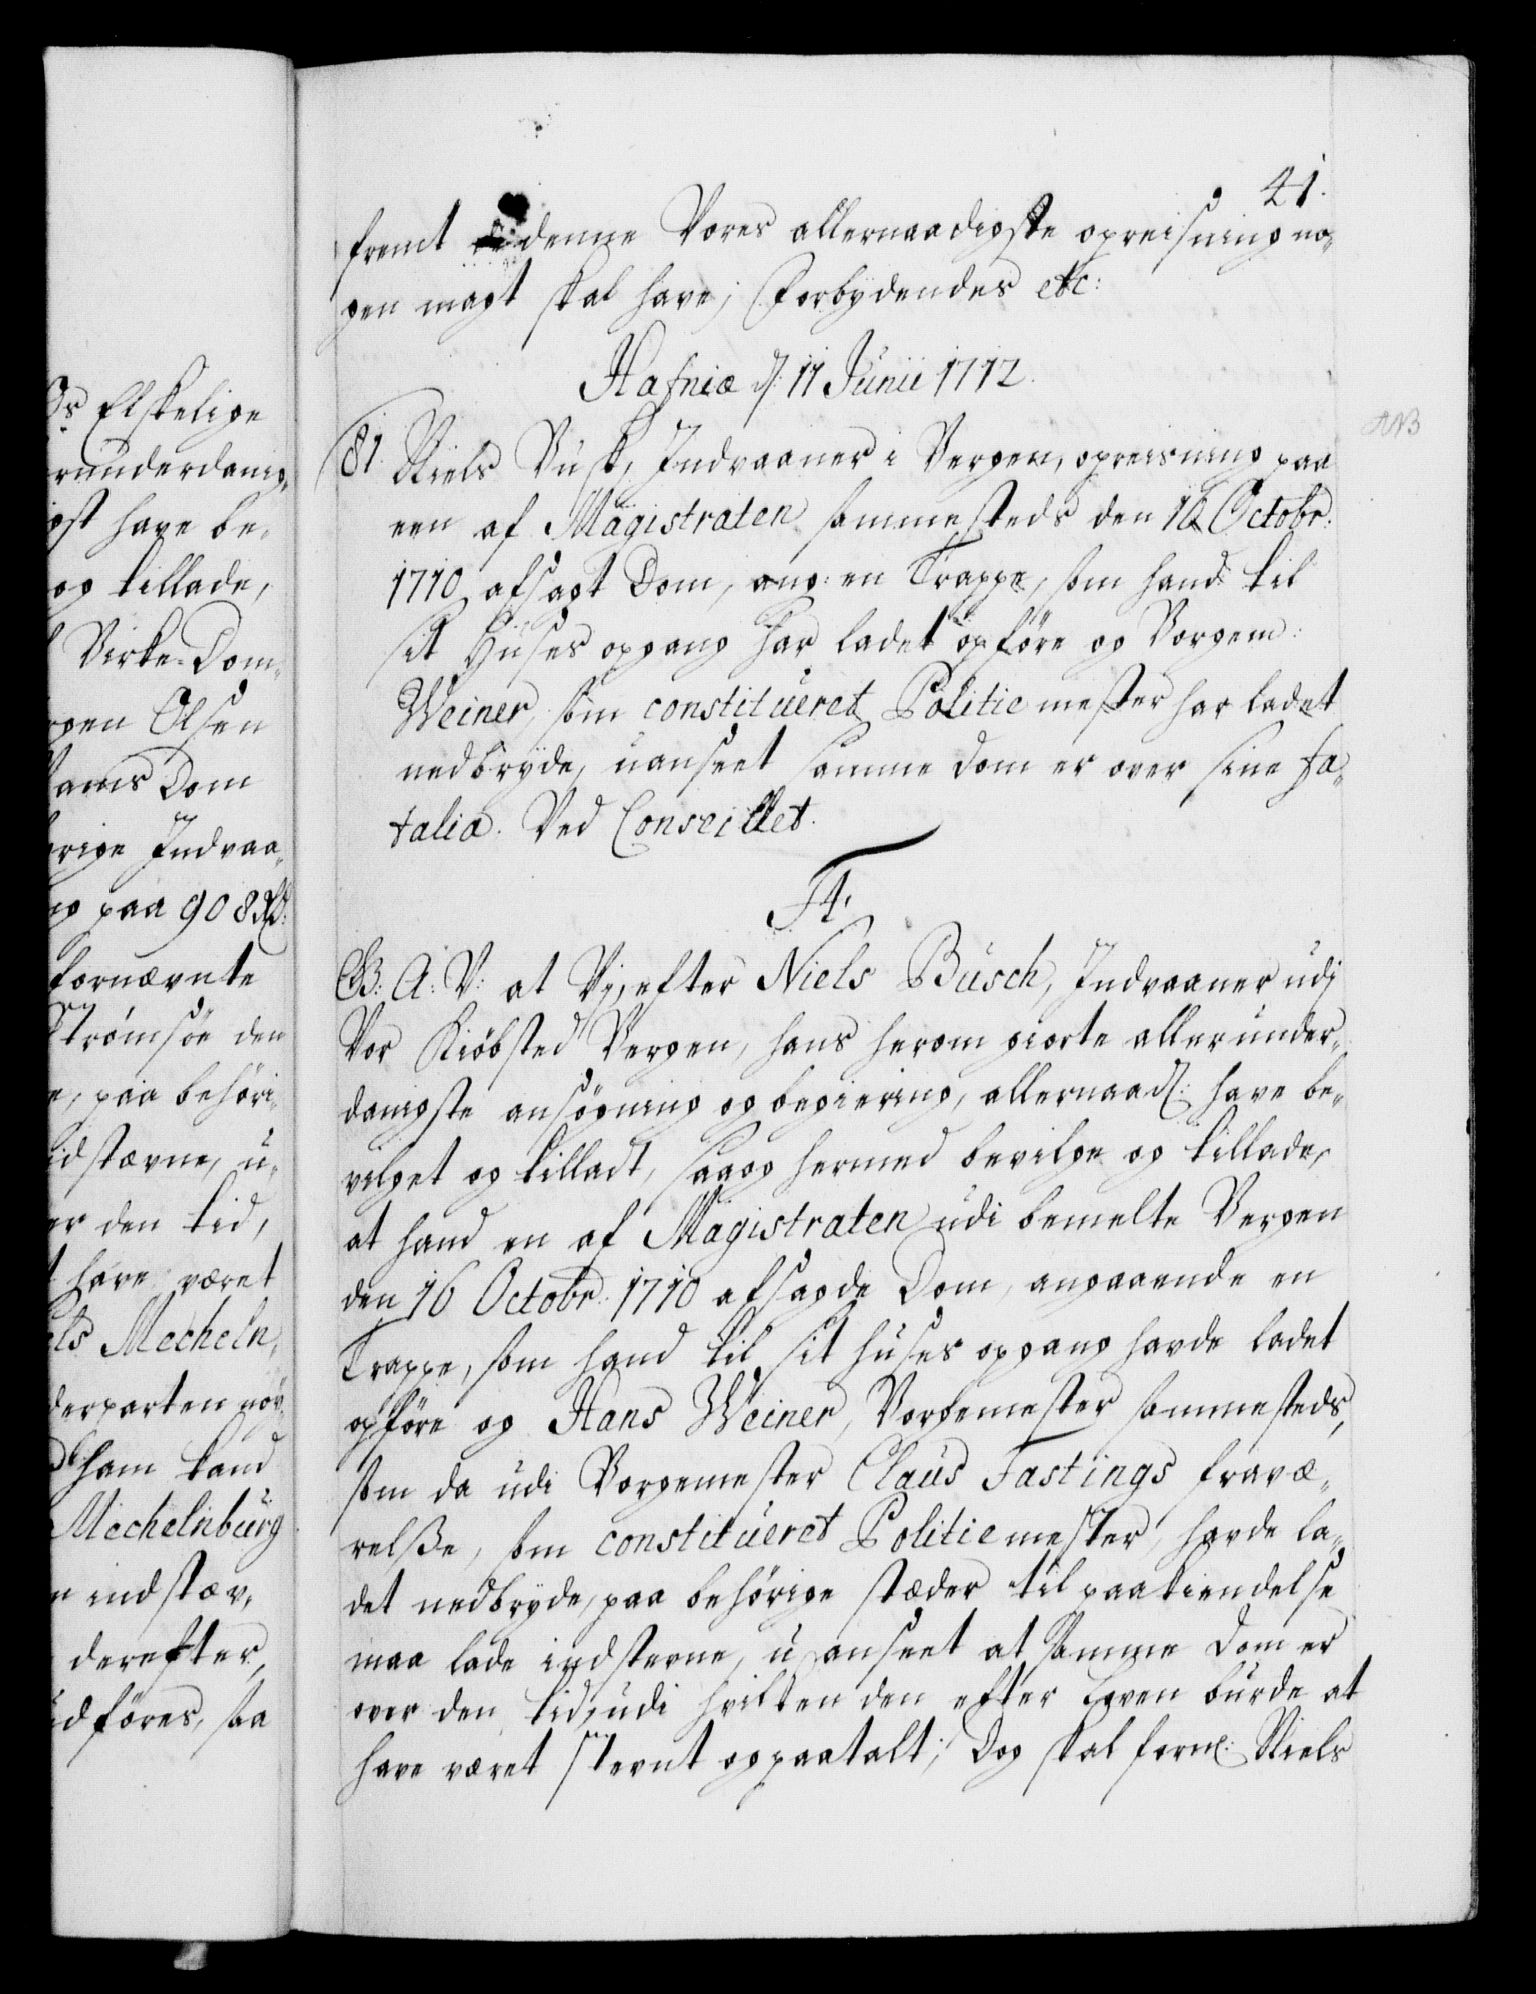 41.
fremt denne Vores allernaadigste opreisning no-
gen magt skal have; Forbydendes etc:
Hafniæ d: 11 Junii 1712.
NB
81. Niels Busk, Indvaaner i Bergen, opreisning paa
een af Magistraten sammesteds den 16 Octobr:
1710 afsagt Dom, ang: en Trappe, som hand til
sit Huses opgang har ladet opföre og Borgem:
Weiner, som constitueret Politie mester har ladet
nedbryde, uanseet samme Dom er over sine fa-
talia. Ved Conseillet.
F4.
G: A: V: at Vj, efter Niels Busch, Indvaaner udj
Vor Kiöbsted Bergen, hans herom giorte allerunder-
danigste ansögning og begiering, allernaad: have be-
vilget og tilladt, saa og hermed bevilge og tillade,
at hand en af Magistraten udi bemelte Bergen
den 16 Octobr: 1710 afsagde Dom, angaaende en
Trappe, som hand til sit huses opgang havde ladet
opföre og Hans Weiner, Borgemester sammesteds,
som da udi Borgemester Claus Fastings fravæ-
relße, som constitueret Politie mester, havde la-
det nedbryde, paa behörige stæder til paakiendelse
maa lade indstevne, uanseet at samme Dom er
over den tid, udi hvilken den efter Loven burde at
have været stevnt og paatalt; Dog skal forn: Niels
Os Elskelige
erunderdanig-
gst have be-
og tillade,
Birke-Dom-
rgen Olsen
Dom
Indvaa-
paa 908 Rd:
fornævnte
Strømsöe den
e, paa behöri-
indstævne, u-
er den tid,
have været
els Mecheln-
derparten nöy-
ham kand
Mechelnburg
indstæv-
derefter,
udföres, saa